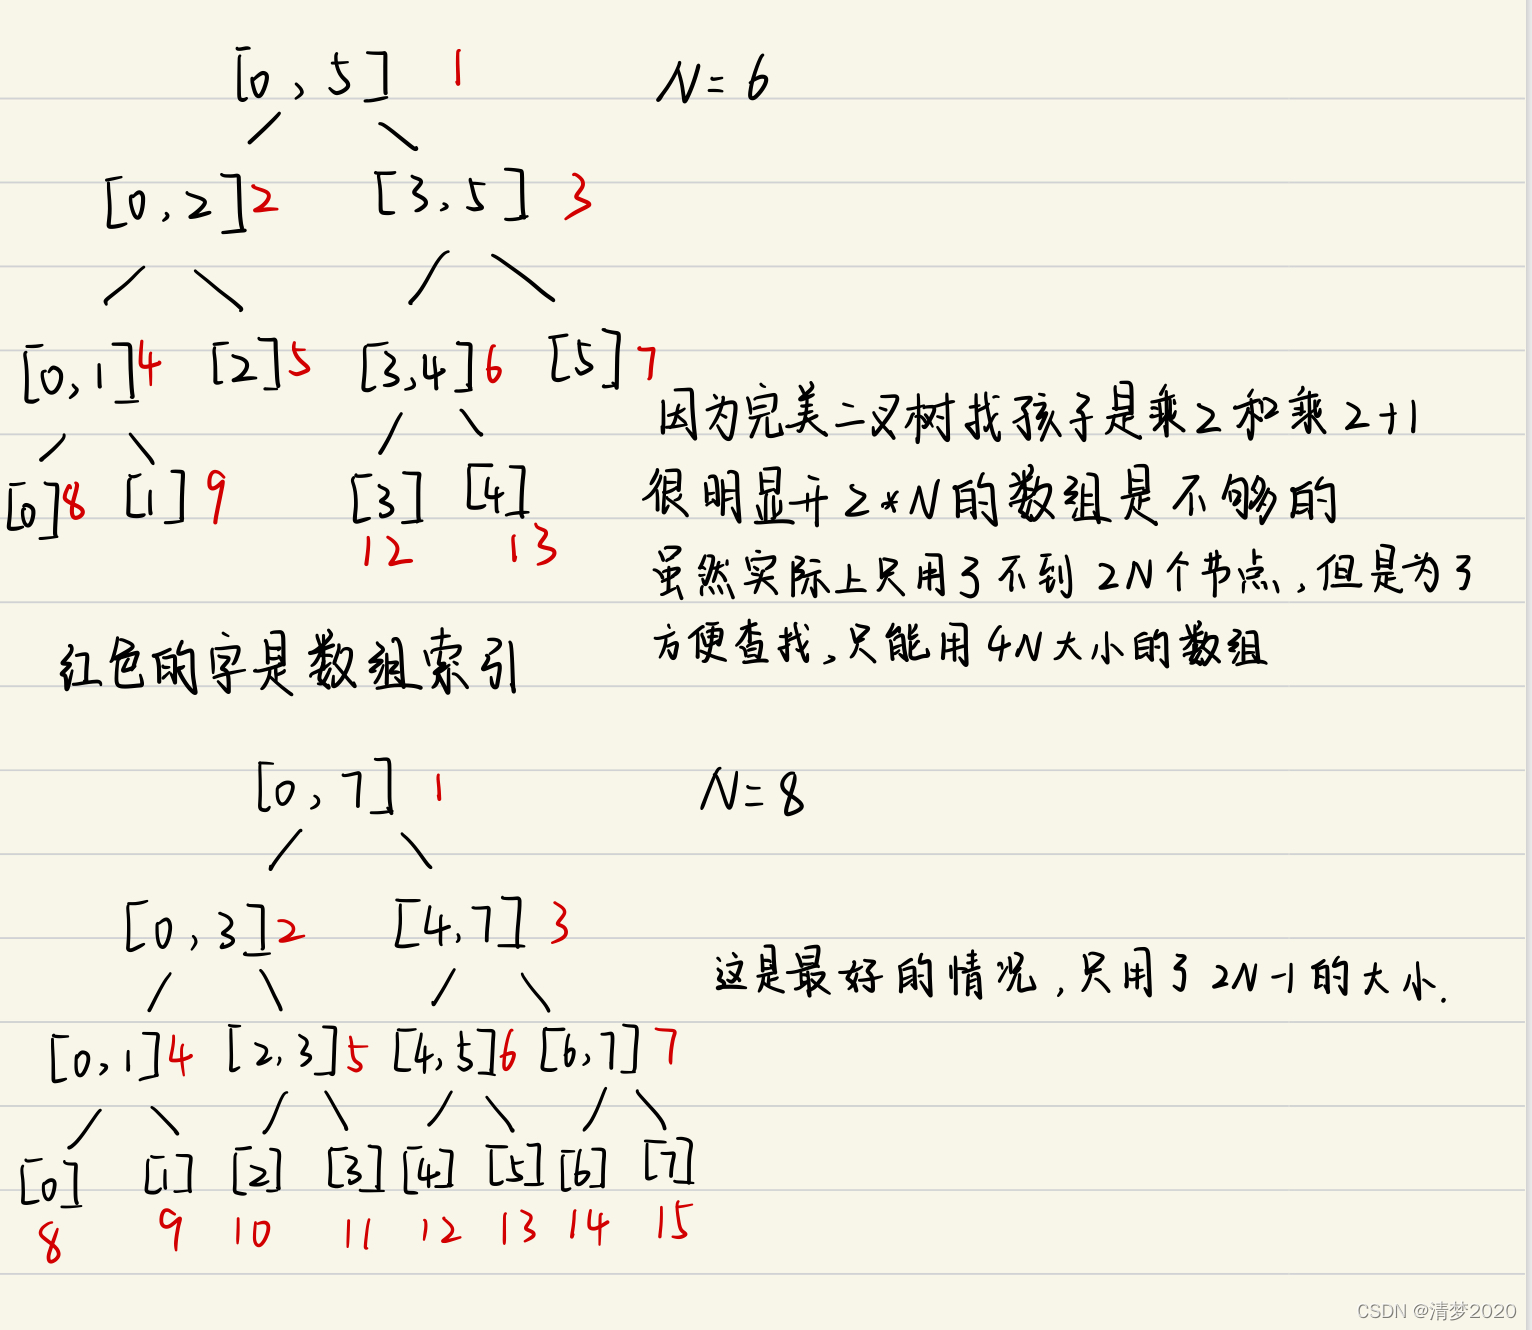 [0, 5] 1 N=6
[0, 2] 2 [3, 5] 3
[0, 1] 4 [2] 5 [3, 4] 6 [5] 7
因为完美二叉树找孩子是乘2和乘2+1
[0] 8 [1] 9 [3] [4]
很明显开2*N的数组是不够的
12 13
虽然实际上只用了不到2N个节点,但是为了
方便查找,只能用4N大小的数组
红色的字是数组索引
[0, 7] 1 N=8
[0, 3] 2 [4, 7] 3
这是最好的情况,只用了2N-1的大小.
[0, 1] 4 [2, 3] 5 [4, 5] 6 [6, 7] 7
[0] [1] [2] [3] [4] [5] [6] [7]
8 9 10 11 12 13 14 15
CSDN @清梦2020